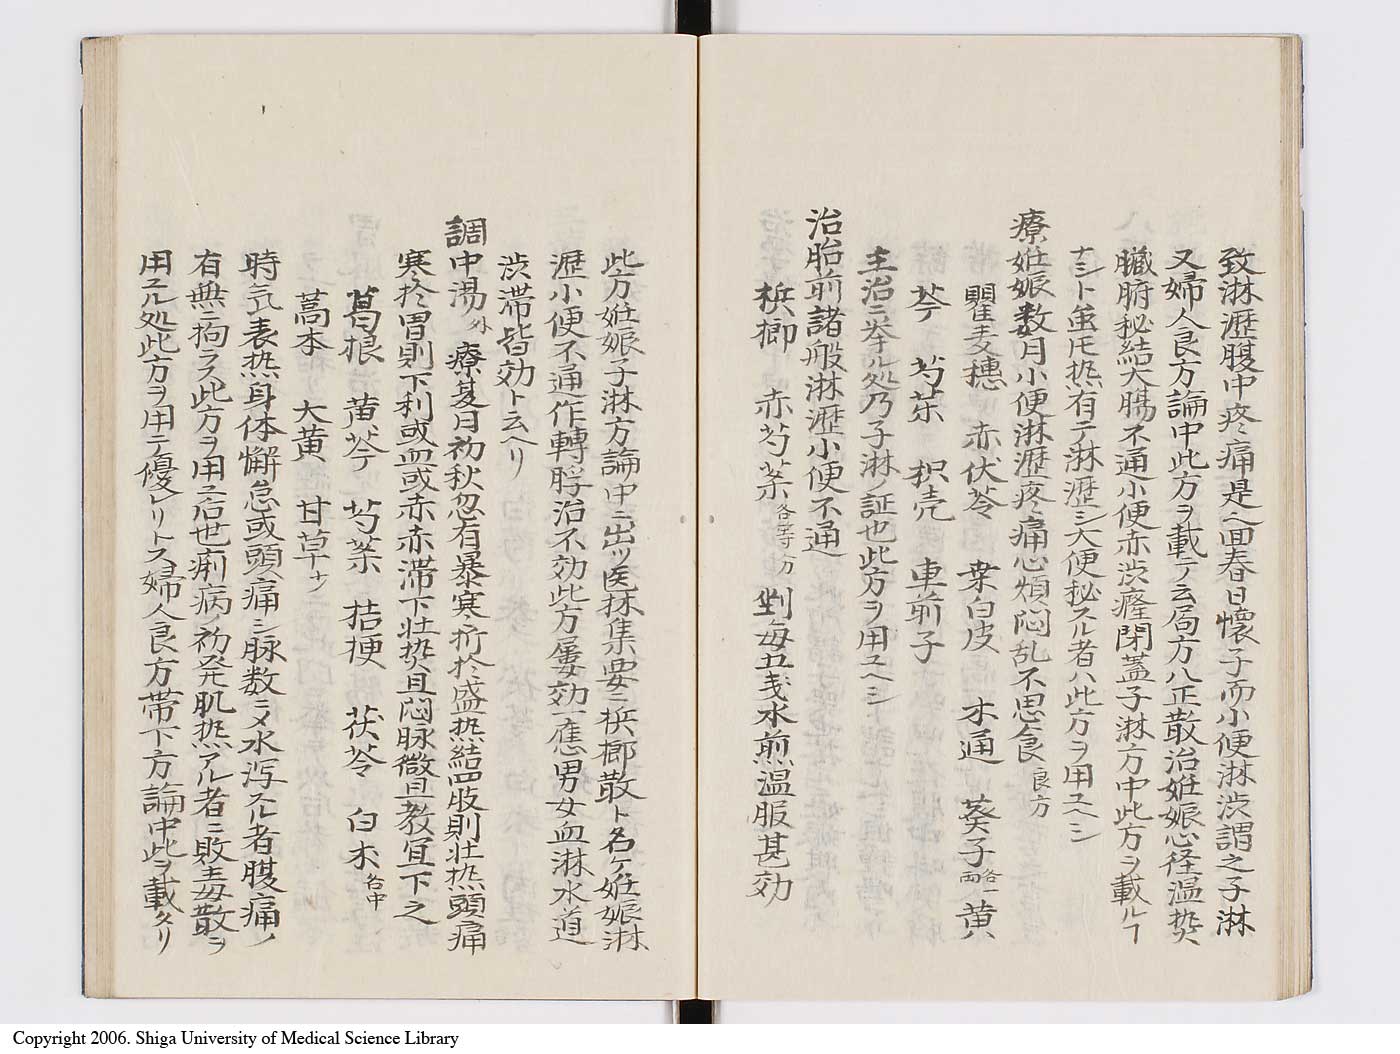 致淋瀝腹中疼痛是ヘ回春曰懐子而小便淋渋謂之子淋
又婦人良方論中此方ヲ載テ云局方八正散治姙娠心経温𤍠
臓腑秘結大腸不通小便赤渋癃閉蓋子淋方中此方ヲ載ルヿ
ナシト虽𪜈热有テ淋瀝シ大便秘スル者ハ此方ヲ用ユヘシ
療姙娠数月小便淋瀝疼痛心煩悶乱不思食良方
瞿麦穗 赤伏苓 桒白皮 木通 葵子各一両 黄
芩 芍茱 枳壳 車前子
主治ニ挙ル処乃子淋ノ証也此方ヲ用ユヘシ
治胎前諸般淋瀝小便不通
梹榔 赤芍茱各等分 剉每五戔水煎温服甚効
此方姙娠子淋方論中ニ出ツ医林集要ニ梹榔散ト名ケ姙娠淋
瀝小便不通作轉脬治不効此方屡効一應男女血淋水道
渋滞皆効ト云ヘリ
調中湯外 療夏月初秋忽有暴寒折於盛热結四肢則壮热頭痛
寒於胃則下利或血或赤赤滞下壮𤍠且悶脉微且数宜下之
葛根 黄芩 芍茱 桔梗 茯苓 白朮各中
藁本 大黄 甘草ナ
時氣表热身体懈怠或頭痛シ脉数ニメ水泻スル者腹痛ノ
有無ニ拘ラス此方ヲ用ユ后世痢病ノ初発肌热アル者ニ敗毒散ヲ
用ユル処此方ヲ用テ優レリトス婦人良方帯下方論中此ヲ載タリ
Copyright 2006. Shiga University of Medical Science Library